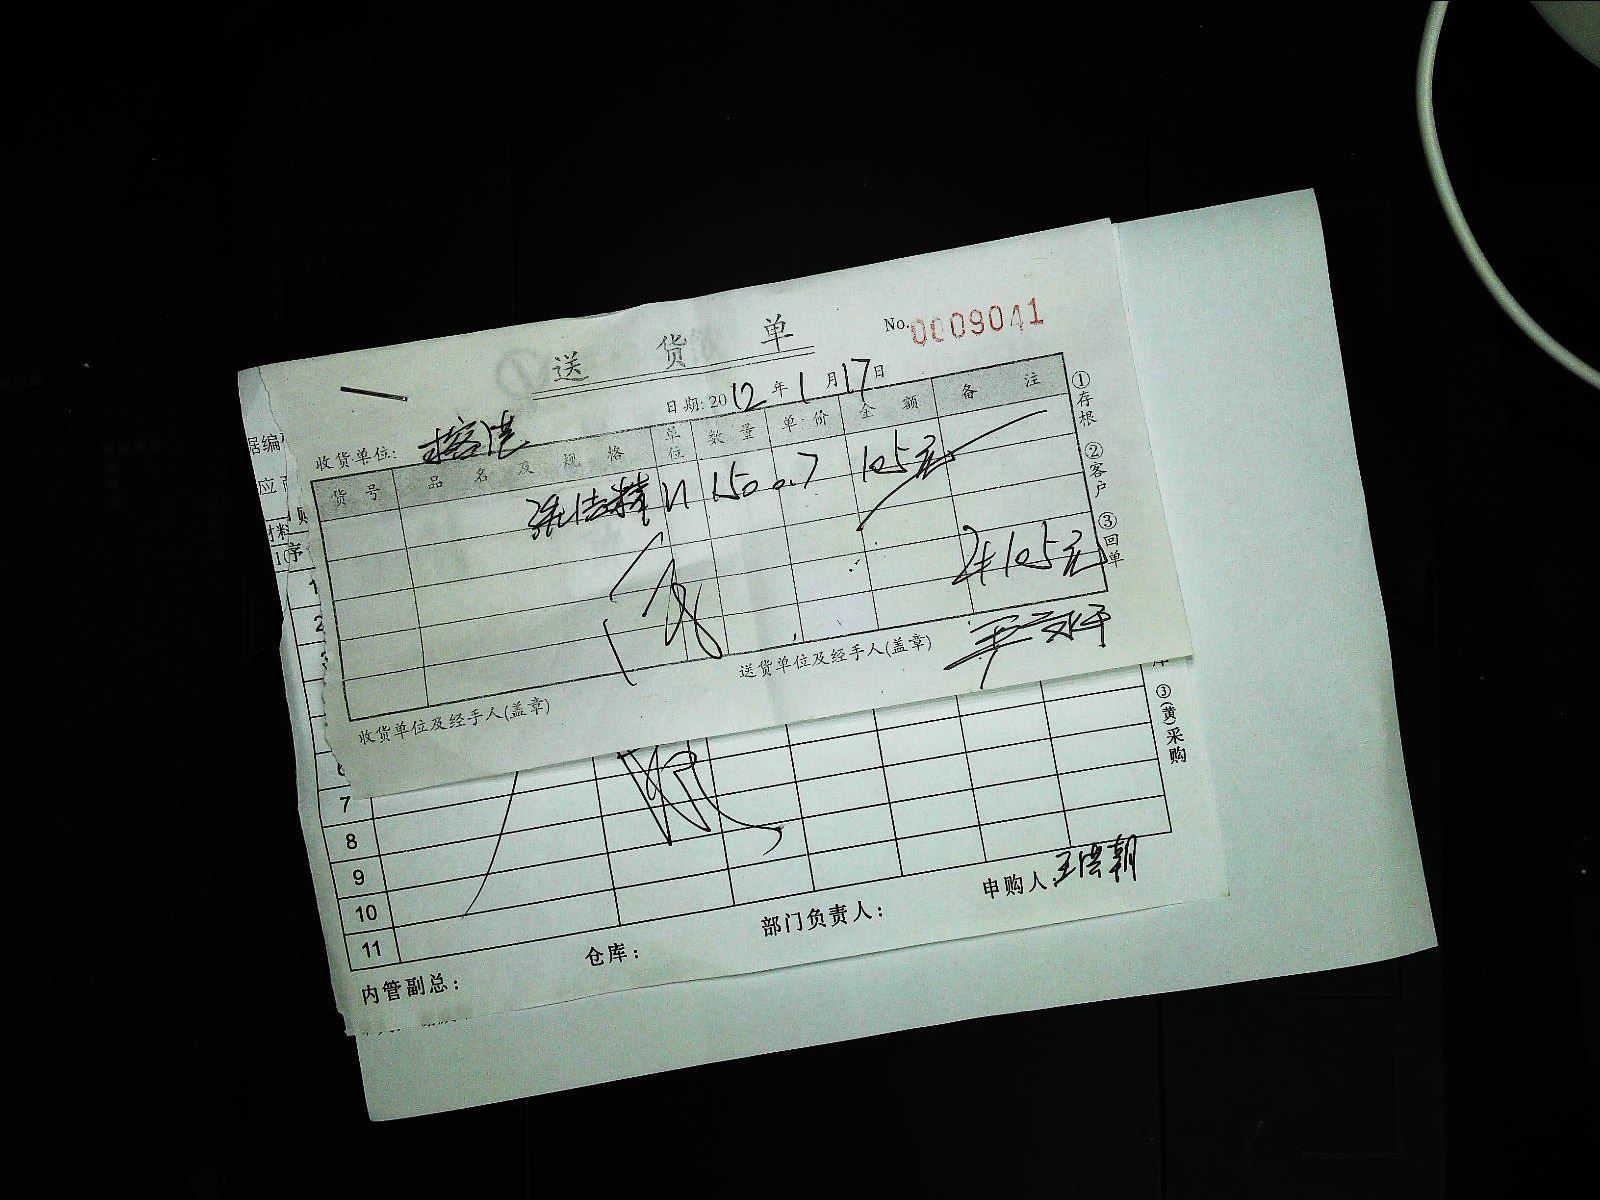 送货单
No. 0009041
日期: 2012年1月17日
收货单位:
货号 品名及规格 单位 数量 单价 金额 备注
150 0.7 105元
105元
①存根 ②客户 ③回单
收货单位及经手人(盖章) 送货单位及经手人(盖章)
据编
应
购
材料
序
1
2
③(黄)采购
7
8
9
10
11
内管副总: 仓库: 部门负责人: 申购人:王洪朝